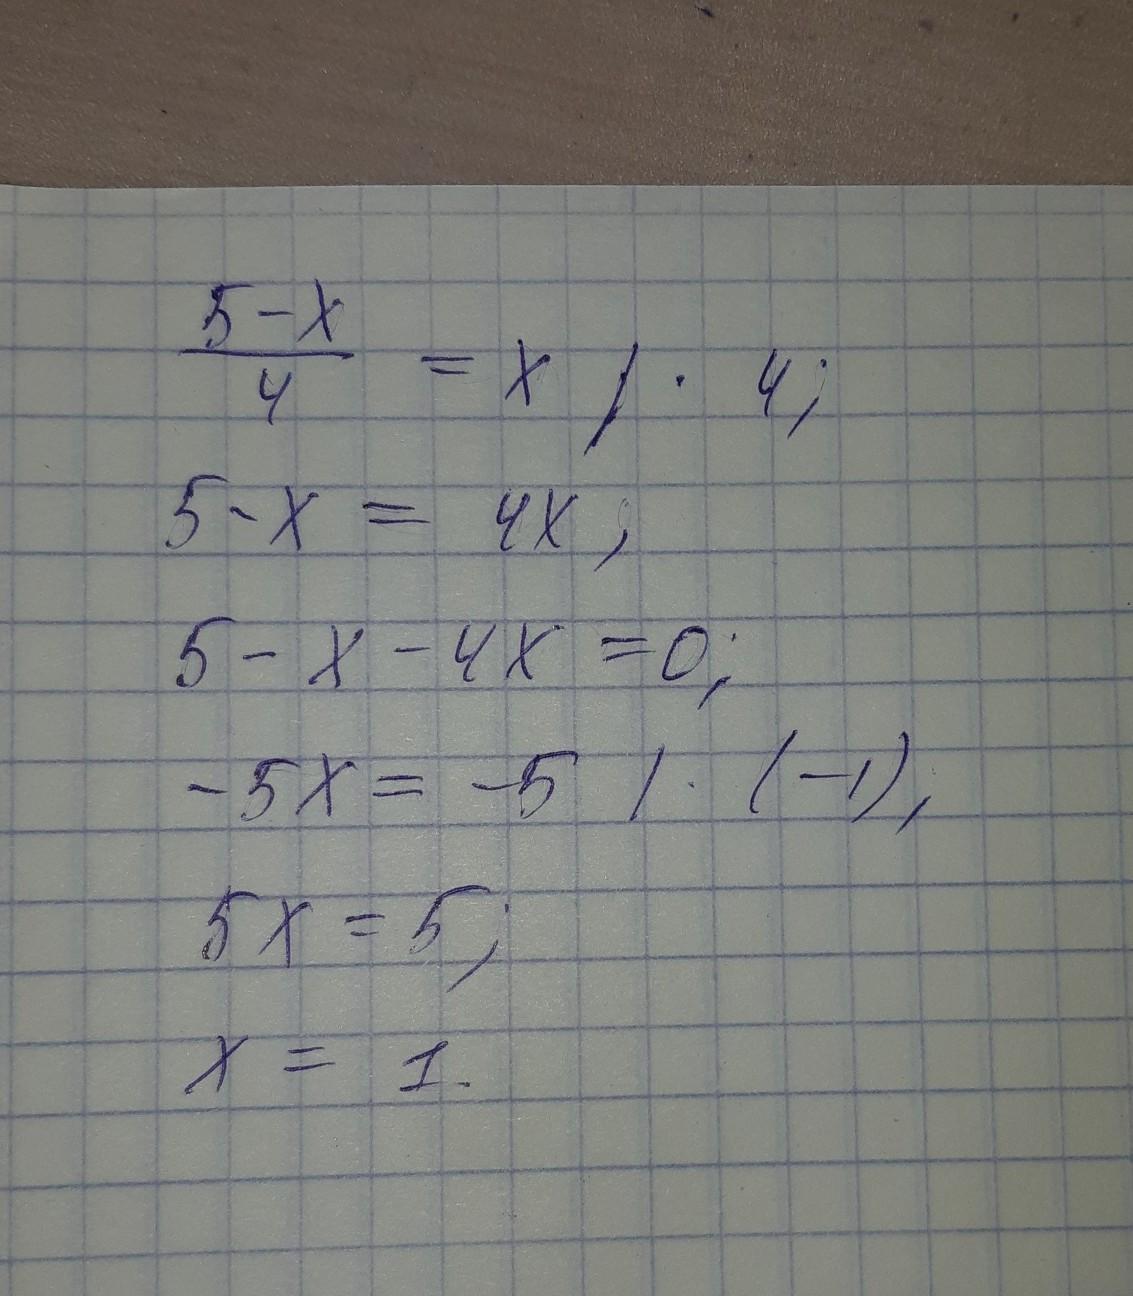 5-x/4 = x / · 4;
5-x = 4x;
5 - x - 4x = 0;
-5x = -5 / · (-1);
5x = 5;
x = 1.